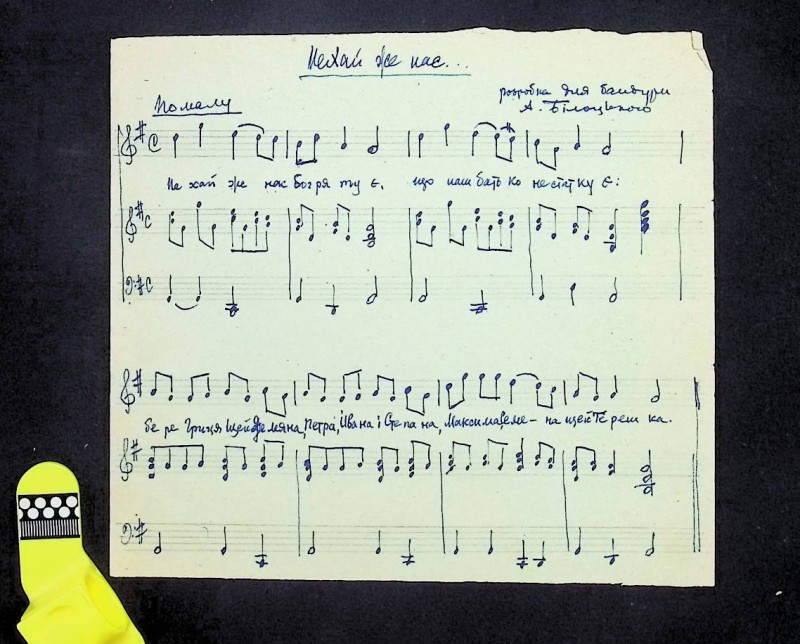 Нехай же нас...
розробка для бандури
Помалу
А. Білоцького
Не хай же нас Бог ря ту є, що наш бать ко не стат ку є:
бе ре Гриця щей Демяна, Петра, Йвана і Сте па на, Максима, Семе – на щей Те реш ка.